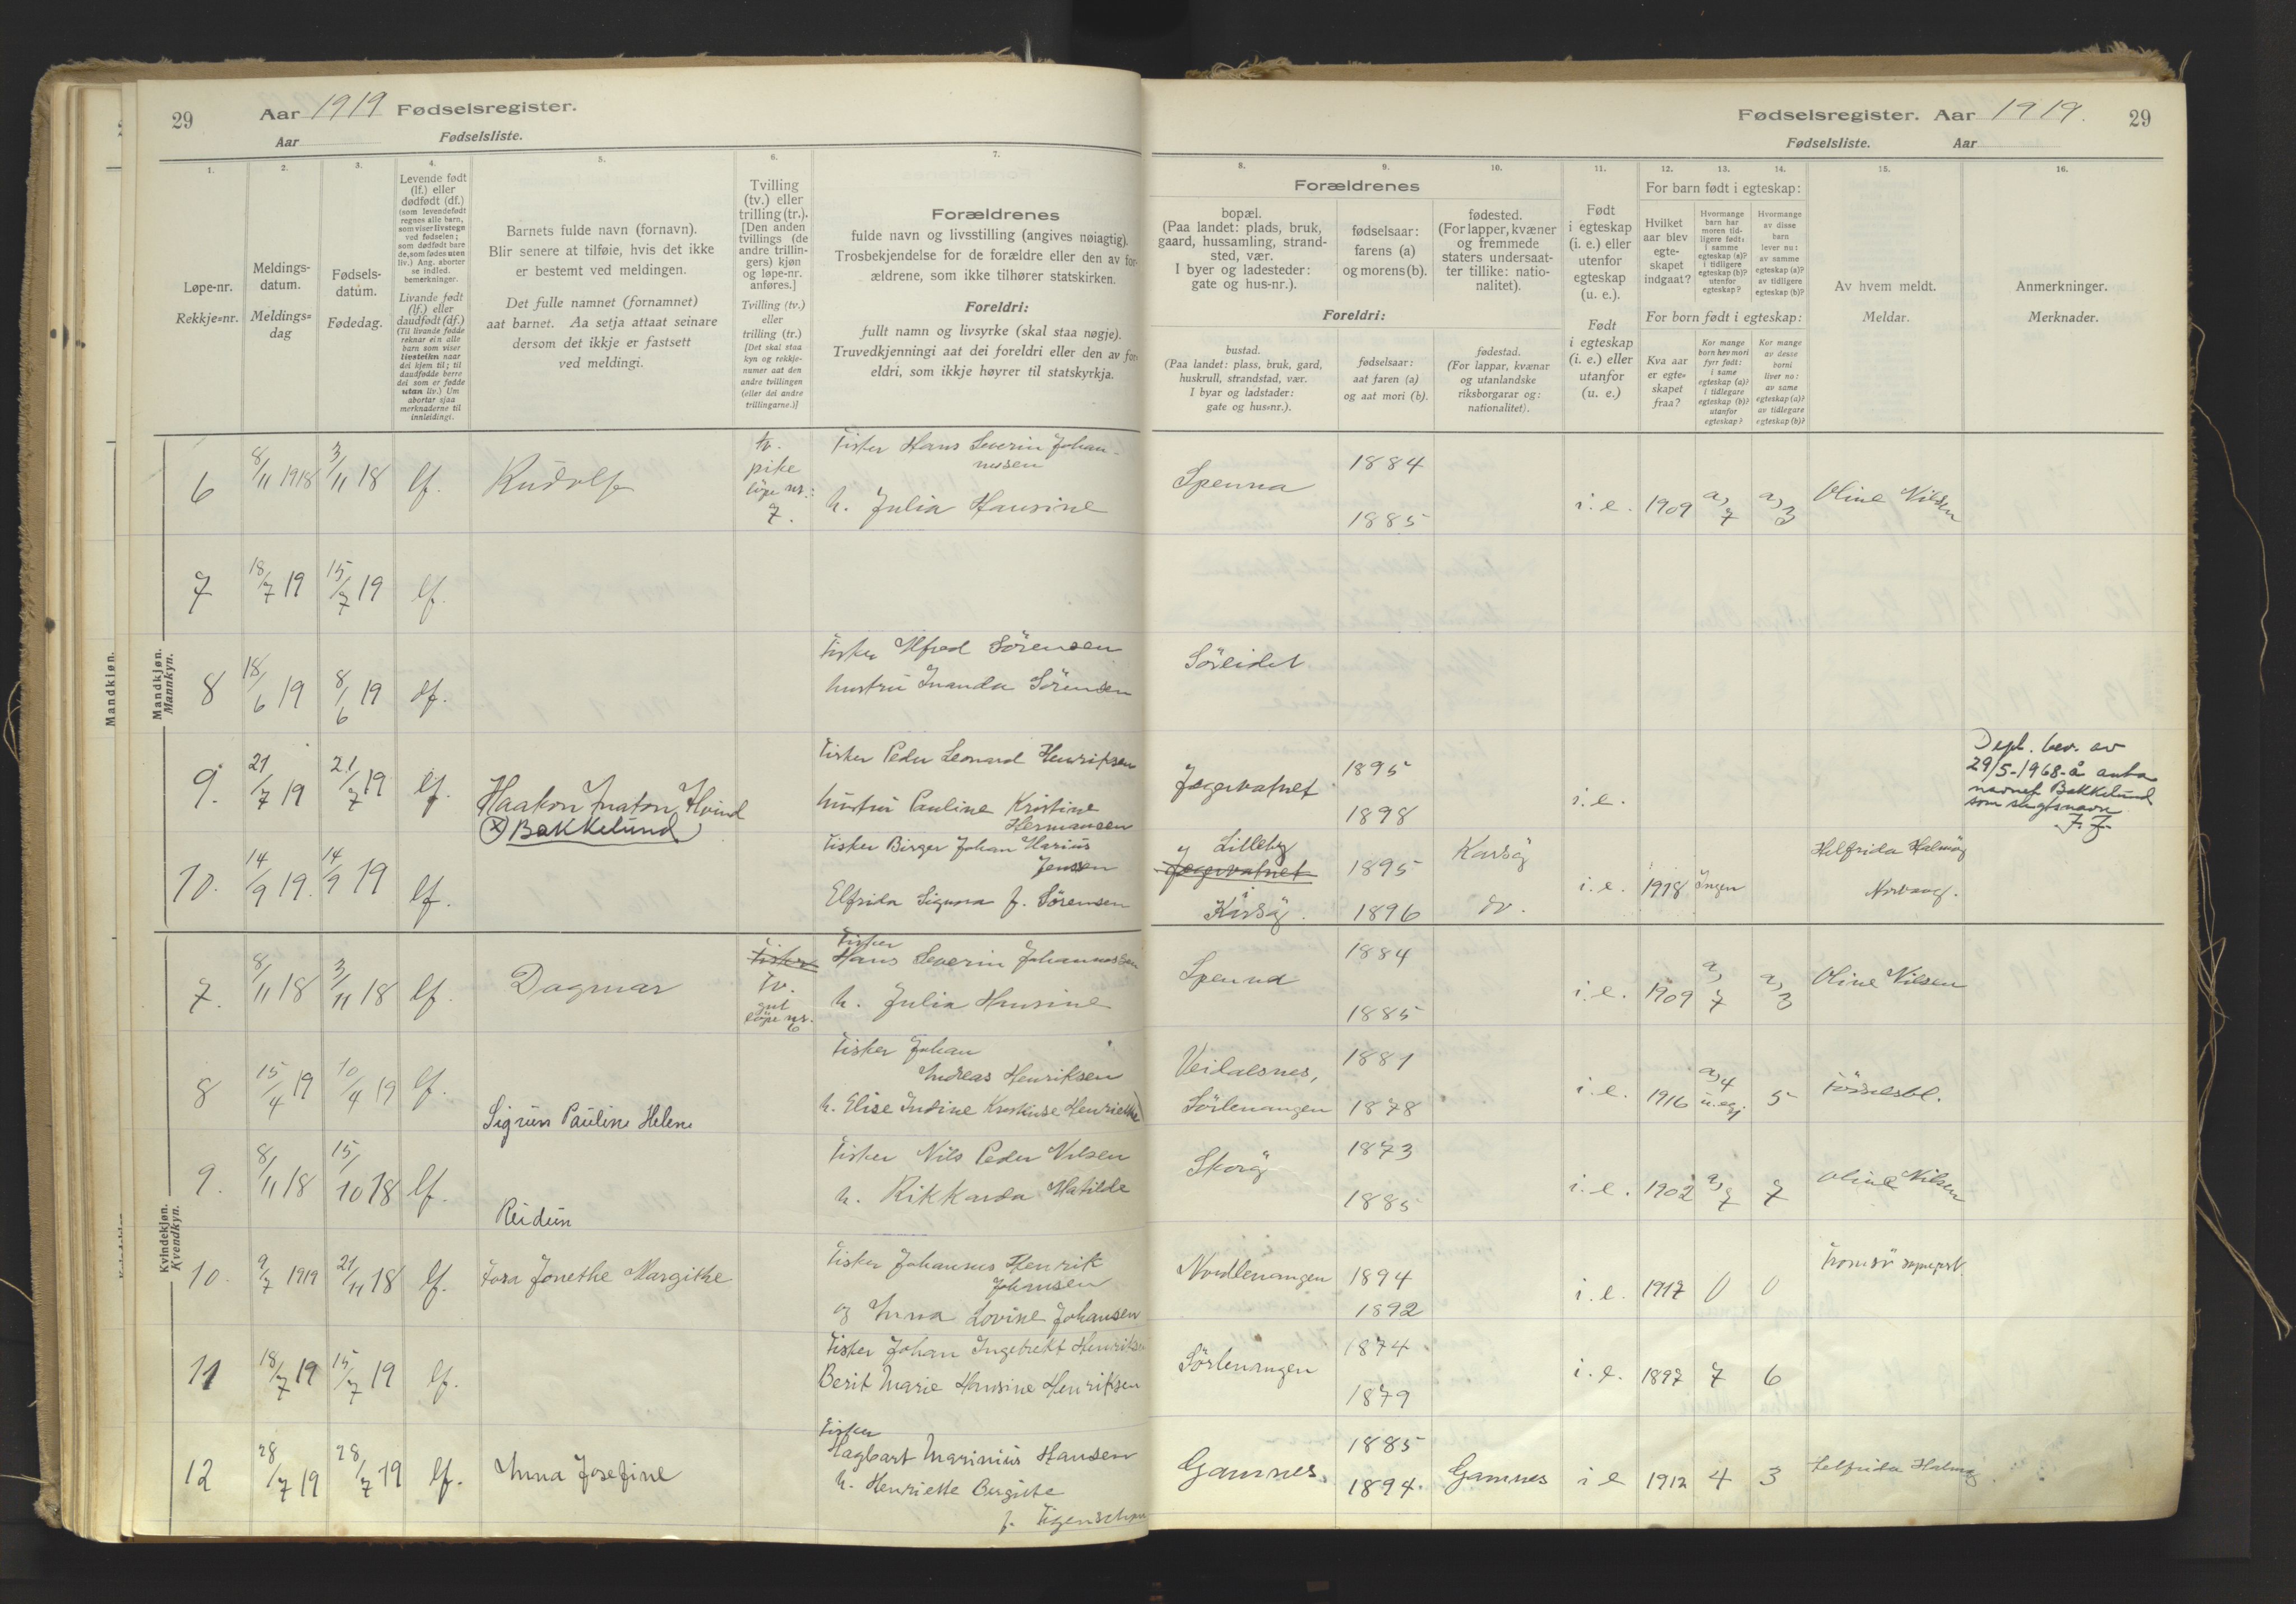 29
Aar 1919 Fødselsregister.
Aar
Fødselsliste.
1.
2.
3.
4.
5.
6.
7.
Løpe-nr.
Rekkje-nr.
Meldings-
datum.
Meldings-
dag
Fødsels-
datum.
Fødedag.
Levende født
(lf.) eller
dødfødt (df.)
(som levendefødt
regnes alle barn,
som viser livstegn
ved fødselen;
som dødfødt bare
de, som fødes uten
liv.) Ang. aborter
se indled.
bemerkninger.
Livande født
(lf.) eller
daudfødt (df.)
(Til livande fødde
reknar ein alle
barn som viser
livsteikn naar
dei kjem til; til
daudfødde berre
dei som er fødde
utan liv.) Um
abortar sjaa
merknaderne til
innleidingi.
Barnets fulde navn (fornavn).
Blir senere at tilføie, hvis det ikke
er bestemt ved meldingen.
Det fulle namnet (fornamnet)
aat barnet. Aa setja attaat seinare
dersom det ikkje er fastsett
ved meldingi.
Tvilling
(tv.) eller
trilling (tr.).
[Den anden
tvillings (de
andre trillin-
gers) kjøn
og løpe-nr.
anføres.]
Tvilling (tv.)
eller
trilling (tr.)
[Det skal staa
kyn og rekkje-
numer aat den
andre tvillingen
(eller dei andre
trillingarne.)]
Forældrenes
fulde navn og livsstilling (angives nøiagtig).
Trosbekjendelse for de forældre eller den av for-
ældrene, som ikke tilhører statskirken.
Foreldri:
fullt namn og livsyrke (skal staa nøgje).
Truvedkjenningi aat dei foreldri eller den av for-
eldri, som ikkje høyrer til statskyrkja.
Mandkjøn.
Mandkjøn.
Mannkyn.
6
8/11 1918
3/11 18
lf.
Rudolf
tv.
pike
løpe nr.:
7.
Fisker Hans Severin Johan-
nesen
h. Julia Hansine
7
18/7 19
15/7 19
lf.
8
18/6 19
8/6 19
df.
Fisker Alfred Sörensen
hustru Inanda Sörensen
9.
21/7 19
21/7 19
lf.
Haakon
(x) Bakkelund
Fisker Peder Leonard Henriksen
hustru Pauline Kristine
Hermansen
10.
14/9 19.
14/9 19
lf.
Fisker Birger Johan Marius
Jensen
Elfrida Signora f. Sørensen
Kvindekjøn.
Kvendkyn.
7.
8/11 18
3/11 18
lf.
Dagmar
Fisker
tv.
gut
løpe nr.
6
Fisker
Hans Severin Johannessen
h. Julia Hansine
8
15/4 19
10/4 19
lf.
Sigrun Pauline Helene
Fisker Johan
Andreas Henriksen
h. Elise Indine
9.
8/11 18
15/10 18
lf.
Reidun
Fisker Nils Peder Nilsen
h. Rikkarda Matilde
10.
9/7 1919
21/11 18
lf.
Tora Jonethe Margithe
Fisker Johannes Henrik
Johansen
og Anna Lovine Johansen
11
18/7 19
15/7 19
lf.
Fisker Johan Ingebrekt Henriksen
Berit Marie Hansine Henriksen
12
28/7 19
28/7 19
lf.
Anna Josefine
Fisker
Hagbart Marinius Hansen
h. Henriette Bergitte
f.
Fødselsregister. Aar 1919.
29
Fødselsliste.
Aar
8.
9.
10.
11.
12.
13.
14.
15.
16.
Forældrenes
bopæl.
(Paa landet: plads, bruk,
gaard, hussamling, strand-
sted, vær.
I byer og ladesteder:
gate og hus-nr.).
fødselsaar:
farens (a)
og morens (b).
fødested.
(For lapper, kvæner
og fremmede
staters undersaat-
ter tillike: natio-
nalitet).
Foreldri:
bustad.
(Paa landet: plass, bruk, gard,
huskrull, strandstad, vær.
I byar og ladstader:
gate og hus-nr.).
fødselsaar:
aat faren (a)
og aat mori (b).
fødestad.
(For lappar, kvænar
og utanlandske
riksborgarar og:
nationalitet).
Født
i egteskap
(i. e.) eller
utenfor
egteskap
(u. e.).
Født
i egteskap
(i. e.) eller
utanfor
(u. e.)
For barn født i egteskap:
Hvilket
aar blev
egte-
skapet
indgaat?
Hvormange
barn har
moren tid-
ligere født:
i samme
egteskap (a)?
i tidligere
egteskap (b)?
utenfor
egteskap?
Hvormange
av disse
barn
lever nu:
av samme
egteskap (a)?
av tidligere
egteskap (b)?
For born født i egteskap:
Kva aar
er egte-
skapet
fraa?
Kor mange
born hev mori
fyrr født:
i same
egteskap (a)?
i tidlegare
egteskap (b)?
utanfor
egteskap?
Kor mange
av desse
borni
liver no:
av same
egteskap (a)?
av tidlegare
egteskap (b)?
Av hvem meldt.
Meldar.
Anmerkninger.
Merknader.
Spenna
1884
1885
i. e.
1909
a) 7
a) 3
Oline Nilsen
Söreidet
Jægervatnet
1895
1898
i. e.
Dept. bev. av
29/5-1968 å anta
navnet Bakkelund
som slegtsnavn
Lilleby
Jægervatnet
i
Karsö
1895
1896
Karsö
do.
i. e.
1918
Ingen
Helfrida Halmøy
Spenna
1884
1885
i. e.
1909
a) 7
a) 3
Oline Nilsen
Veidalsnes,
Sörlenangen
1881
1878
i. e.
1916
a) 4
5
Skorö
1873
1885
i. e.
1902
a) 7
7
Oline Nilsen
Nordlenangen
1894
1892
i. e.
1917
0
0
Tromsö
Sörlenangen
1874
1879
i. e.
1897
7
6
Gamnes.
1885
1894.
Gamnes
i e
1912
4
3
Helfrida Halmøy